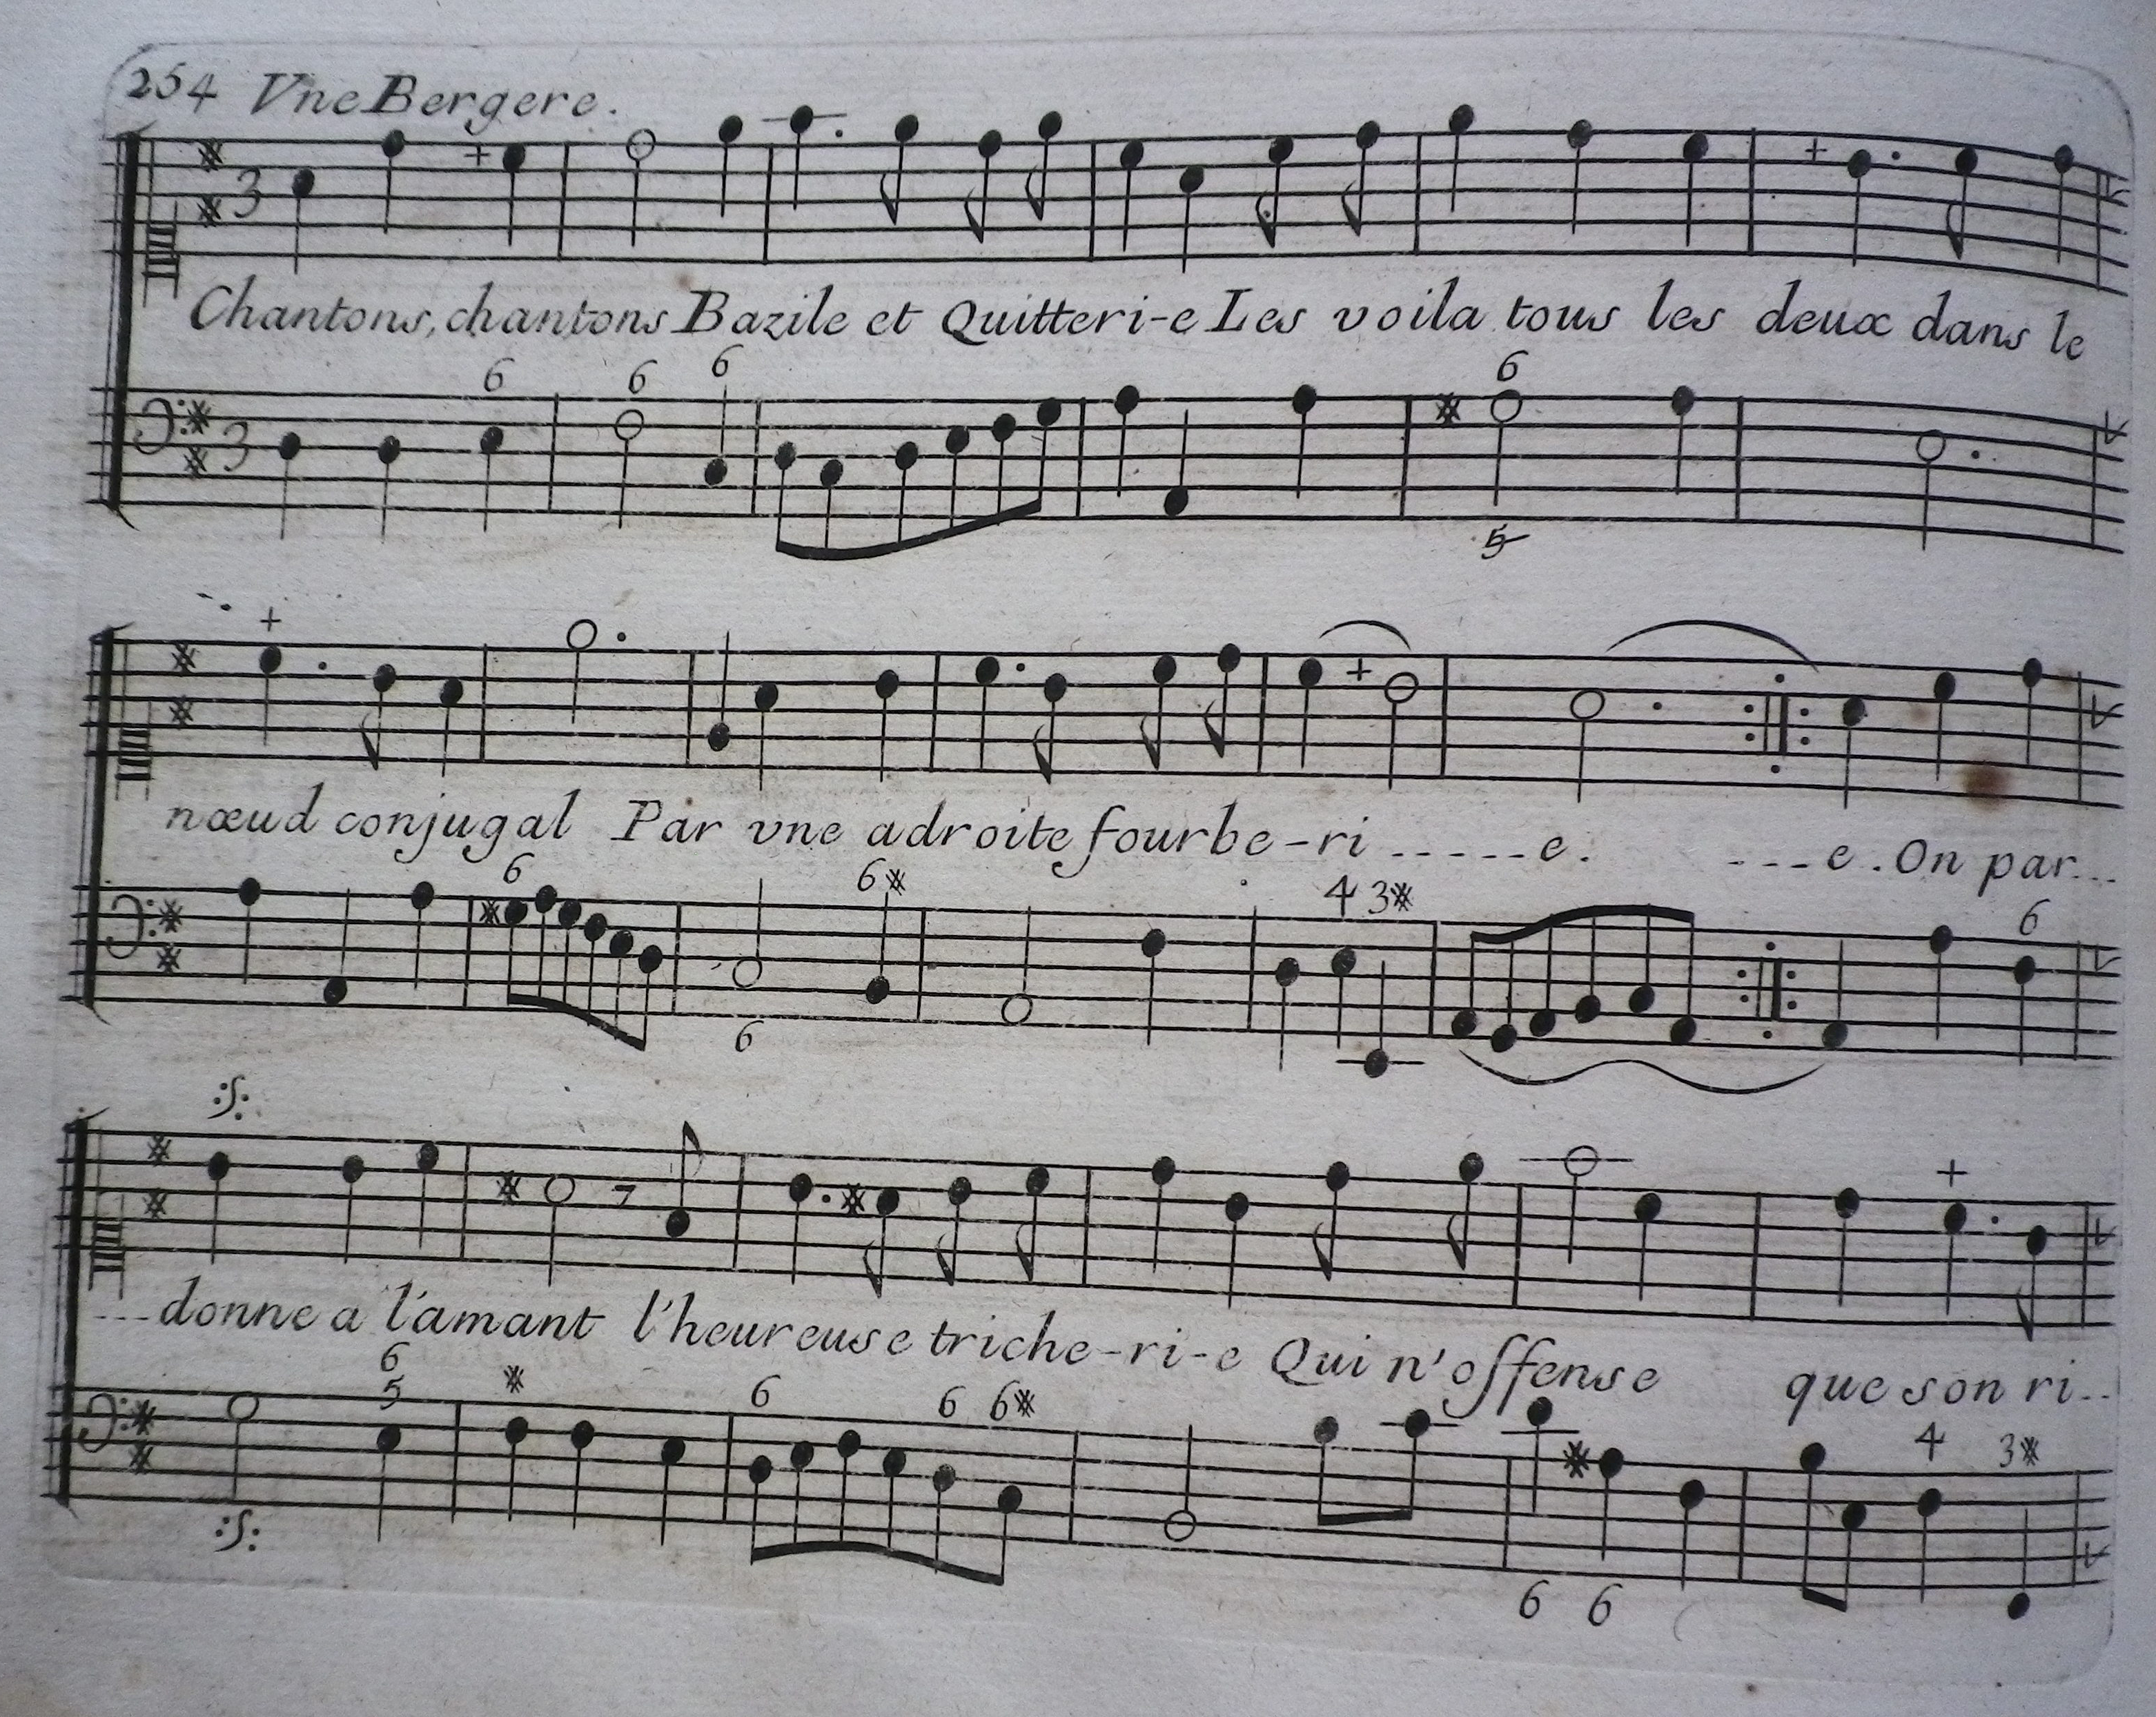 254 Vne Bergere.
3
Chantons, chantons Bazile et Quitteri-e Les voila tous les deux dans le
6 6 6 6
3
5
nœud conjugal Par vne adroite fourbe-ri-----e. ---e. On par...
6 6※ 4 3※ 6
6
---donne a l'amant l'heureuse triche-ri-e Qui n'offense que son ri..
6
5 ※ 6 6 6※ 4 3※
6 6